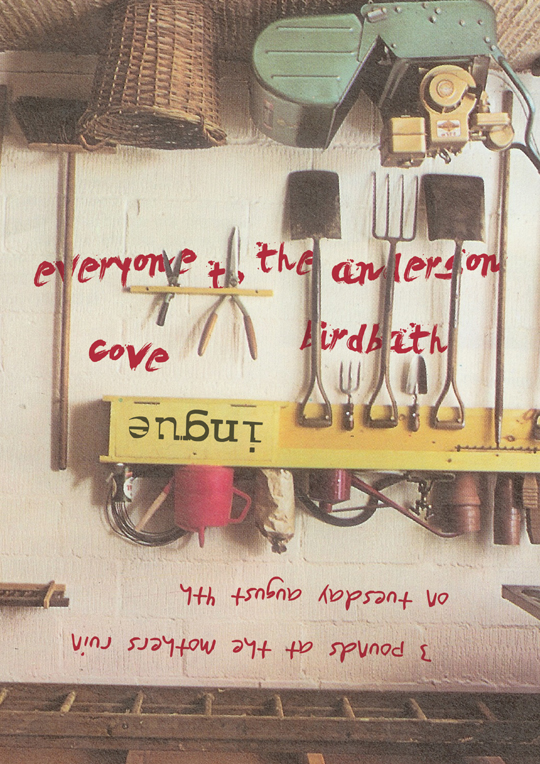 everyone to the anderson
cove birdbath
ingue
on tuesday august 4th
3 pounds at the mothers ruin